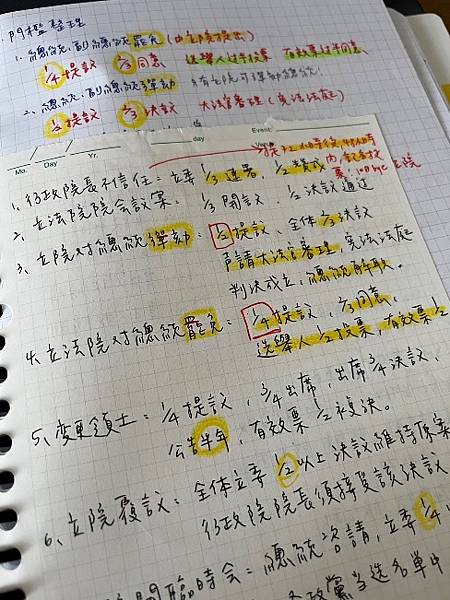 門檻整理
1. 總統、副總統罷免(由立院提出)
1/4提議 2/3同意 選舉人過半投票 有效票過半同意
2. 總統、副總統彈劾
1/2提議 2/3決議 大法官審理(憲法法庭)
Mo. Day Yr. day Event:
1、行政院長不信任:立委1/3連署、1/2贊成
2、立法院院會議案: 1/3開議、1/2決議通過
3、立院對總統彈劾:1/2提議、全体2/3決議
聲請大法官審理,憲法法庭
判決成立,總統解職。
4、立法院對總統罷免:1/4提議,2/3同意,
選舉人1/2投票,有效票1/2
5、變更領土:1/4提議,3/4出席,出席3/4決議,
公告半年,有效票1/2複決。
6、立院覆議:全体立委1/2以上決議維持原案
行政院院長須接受該決議
開臨時會:總統咨請,立委1/4
政黨当選名單中